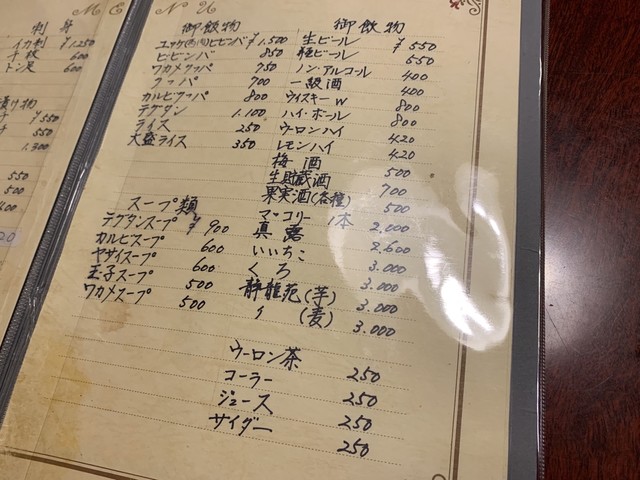 MENU
刺 身
イカ刺 ¥1.250
千枚 600
トン足 600
漬け物
チ ¥550
チ 550
1.300
550
500
御飯物
ビビンバ ¥1.500
ビビンバ 850
ワカメクッパ 750
クッパ 700
カルビクッパ 800
テグタン 1.100
ライス 250
大盛ライス 350
スープ類
テグタンスープ ¥900
カルビスープ 600
ヤサイスープ 600
玉子スープ 500
ワカメスープ 500
御飲物
生ビール ¥550
瓶ビール 550
ノン・アルコール 400
一級酒 400
ウイスキーW 800
ハイ・ボール 800
ウーロンハイ 420
レモンハイ 420
梅酒 500
生貯蔵酒 700
果実酒(各種) 500
マッコリー 1本 2.000
真露 2.600
いいちこ 3.000
くろ 3.000
静龍苑(芋) 3.000
〃 (麦) 3.000
ウーロン茶 250
コーラー 250
ジュース 250
サイダー 250